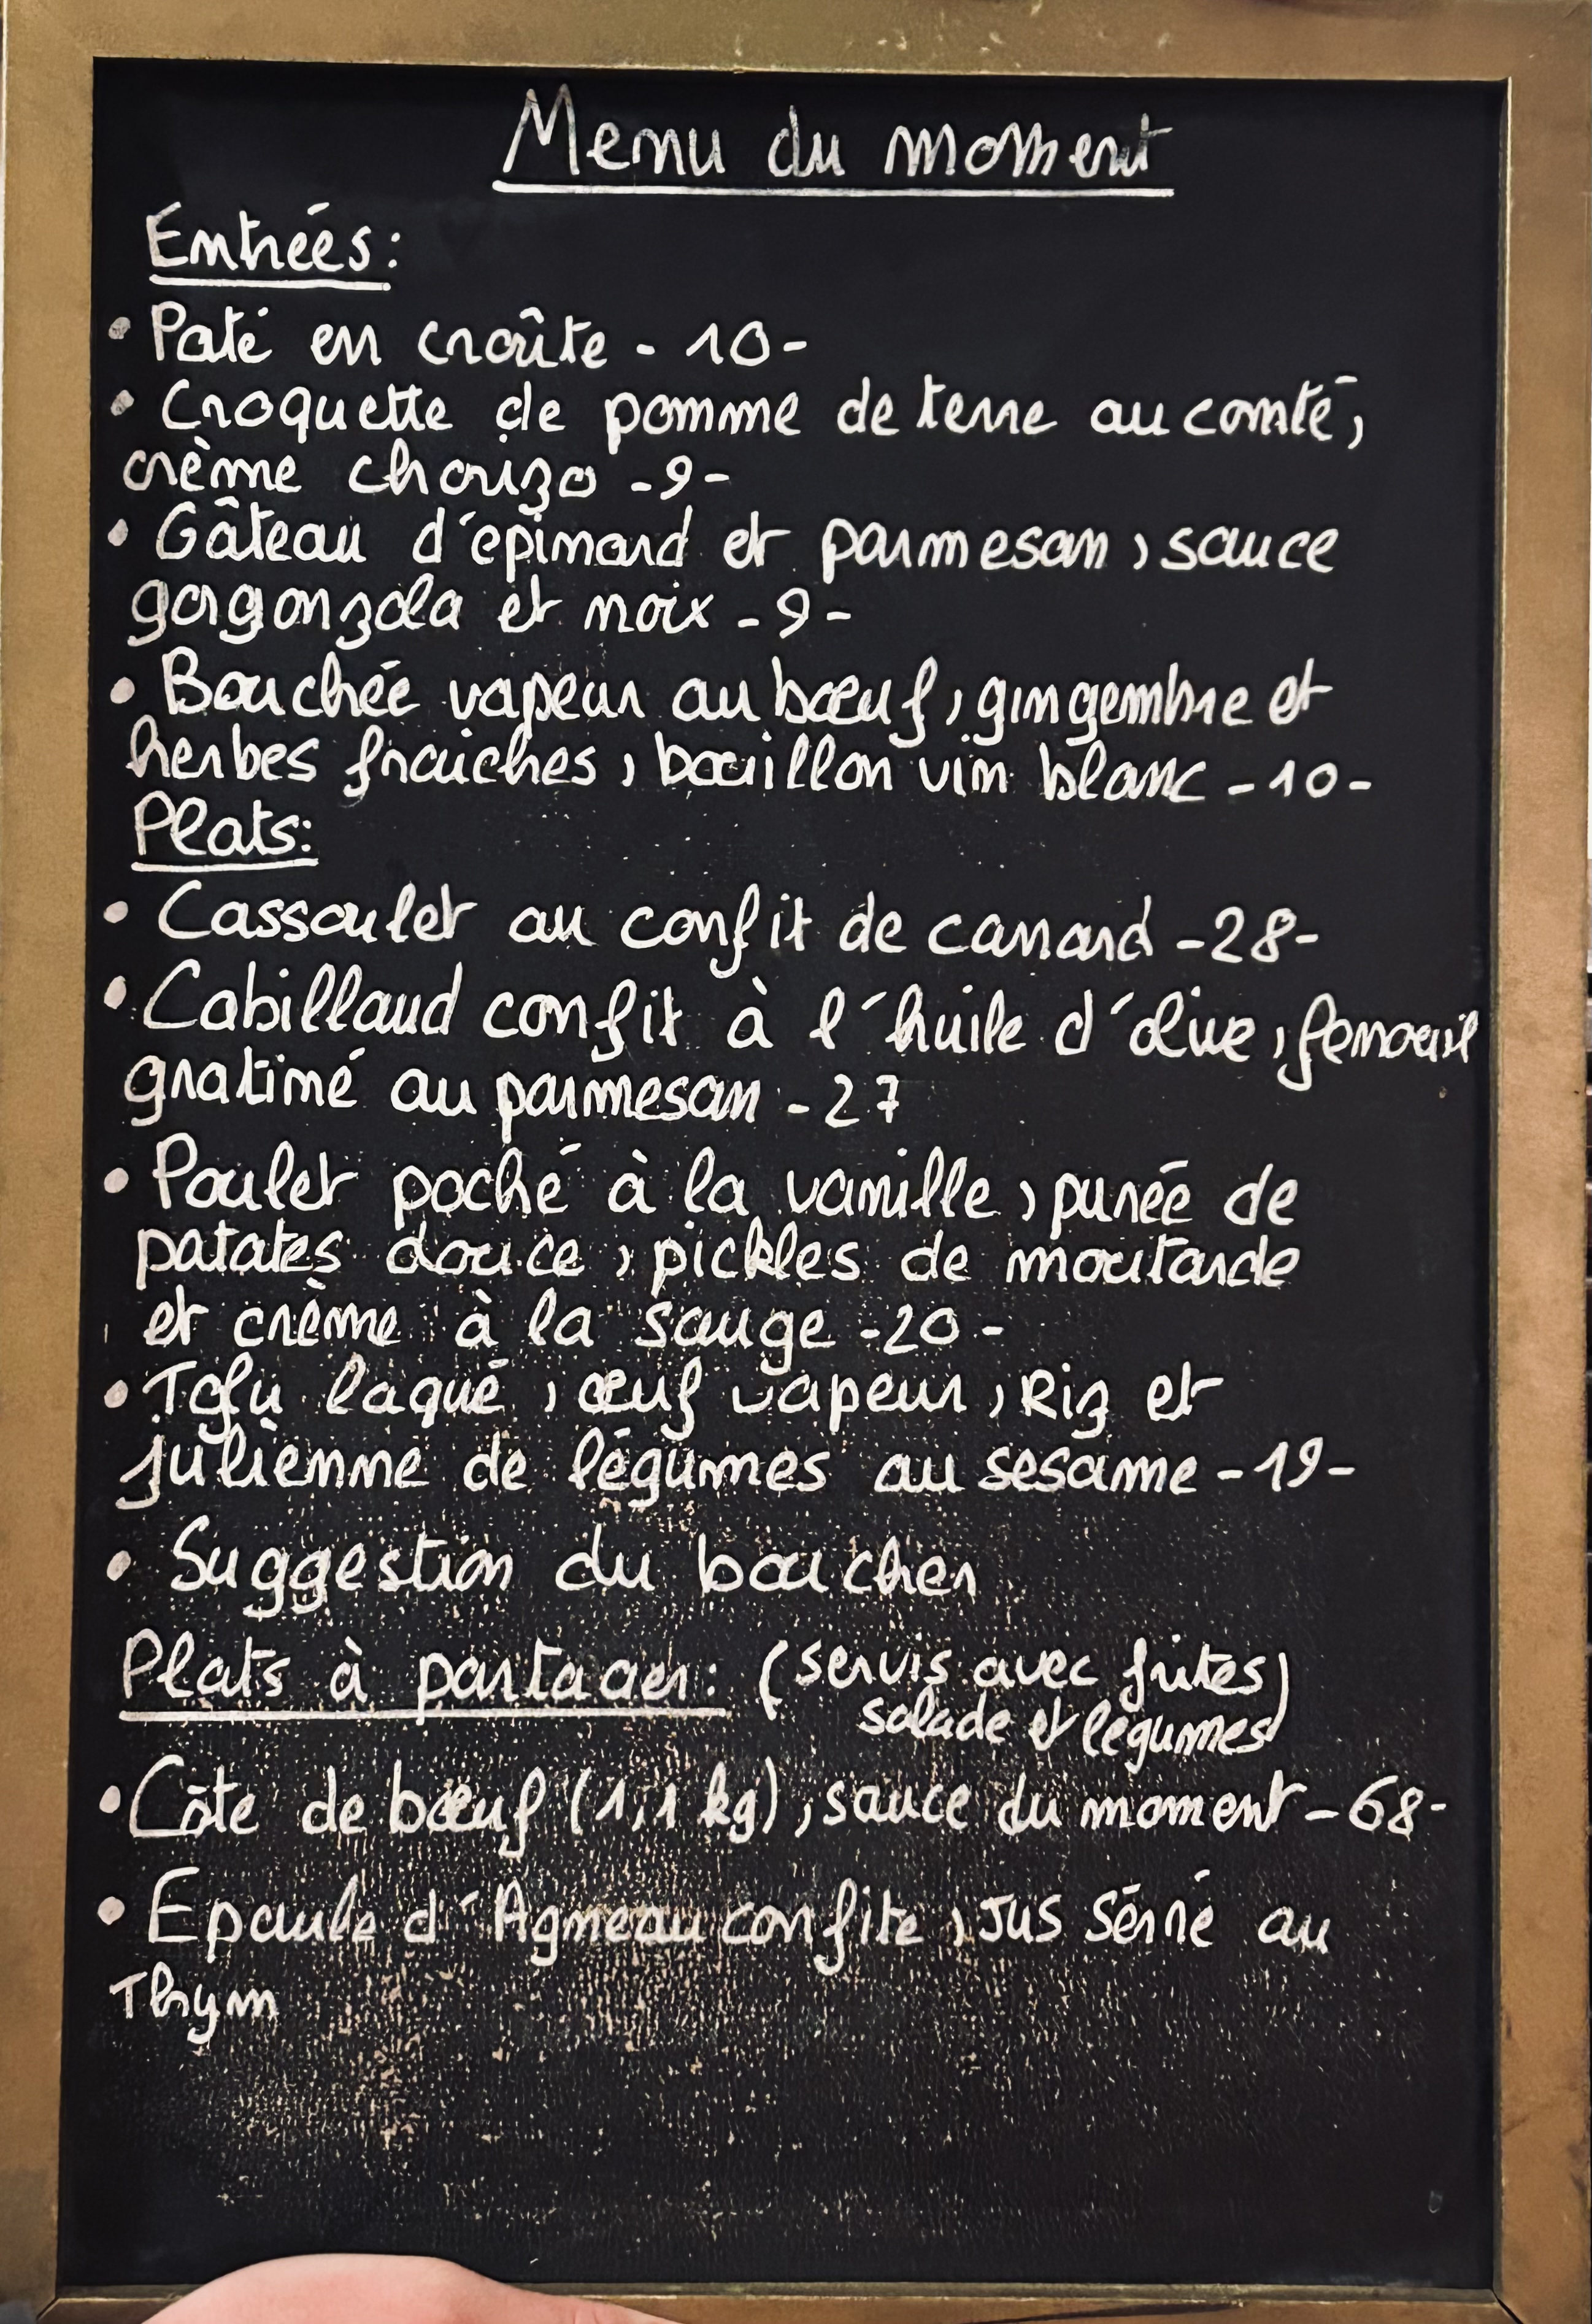 Menu du moment
Entrées:
• Paté en croûte - 10-
• Croquette de pomme de terre au comté,
crème chorizo -9-
• Gâteau d'épinard et parmesan, sauce
gorgonzola et noix -9-
• Bouchée vapeur au bœuf, gingembre et
herbes fraiches, bouillon vin blanc -10-
Plats:
• Cassoulet au confit de canard -28-
• Cabillaud confit à l'huile d'olive, fenouil
gratiné au parmesan -27
• Poulet poché à la vanille, purée de
patates douce, pickles de moutarde
et crème à la sauge -20-
• Tofu laqué, œuf vapeur, Riz et
julienne de légumes au sesame -19-
• Suggestion du boucher
Plats à partager: (servis avec frites)
salade et légumes)
• Côte de bœuf (1,1 kg), sauce du moment -68-
• Epaule d'Agneau confite, Jus Sérré au
Thym